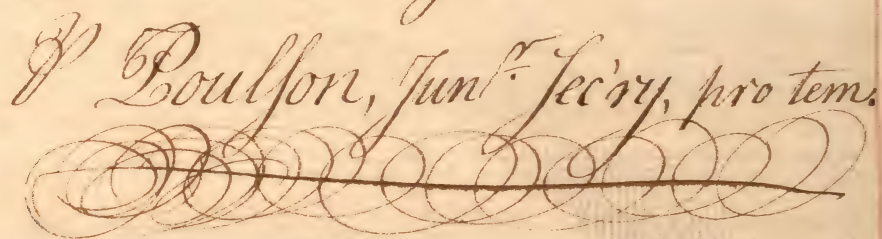 Poulſon, Junʳ. Sec'ry, pro tem.